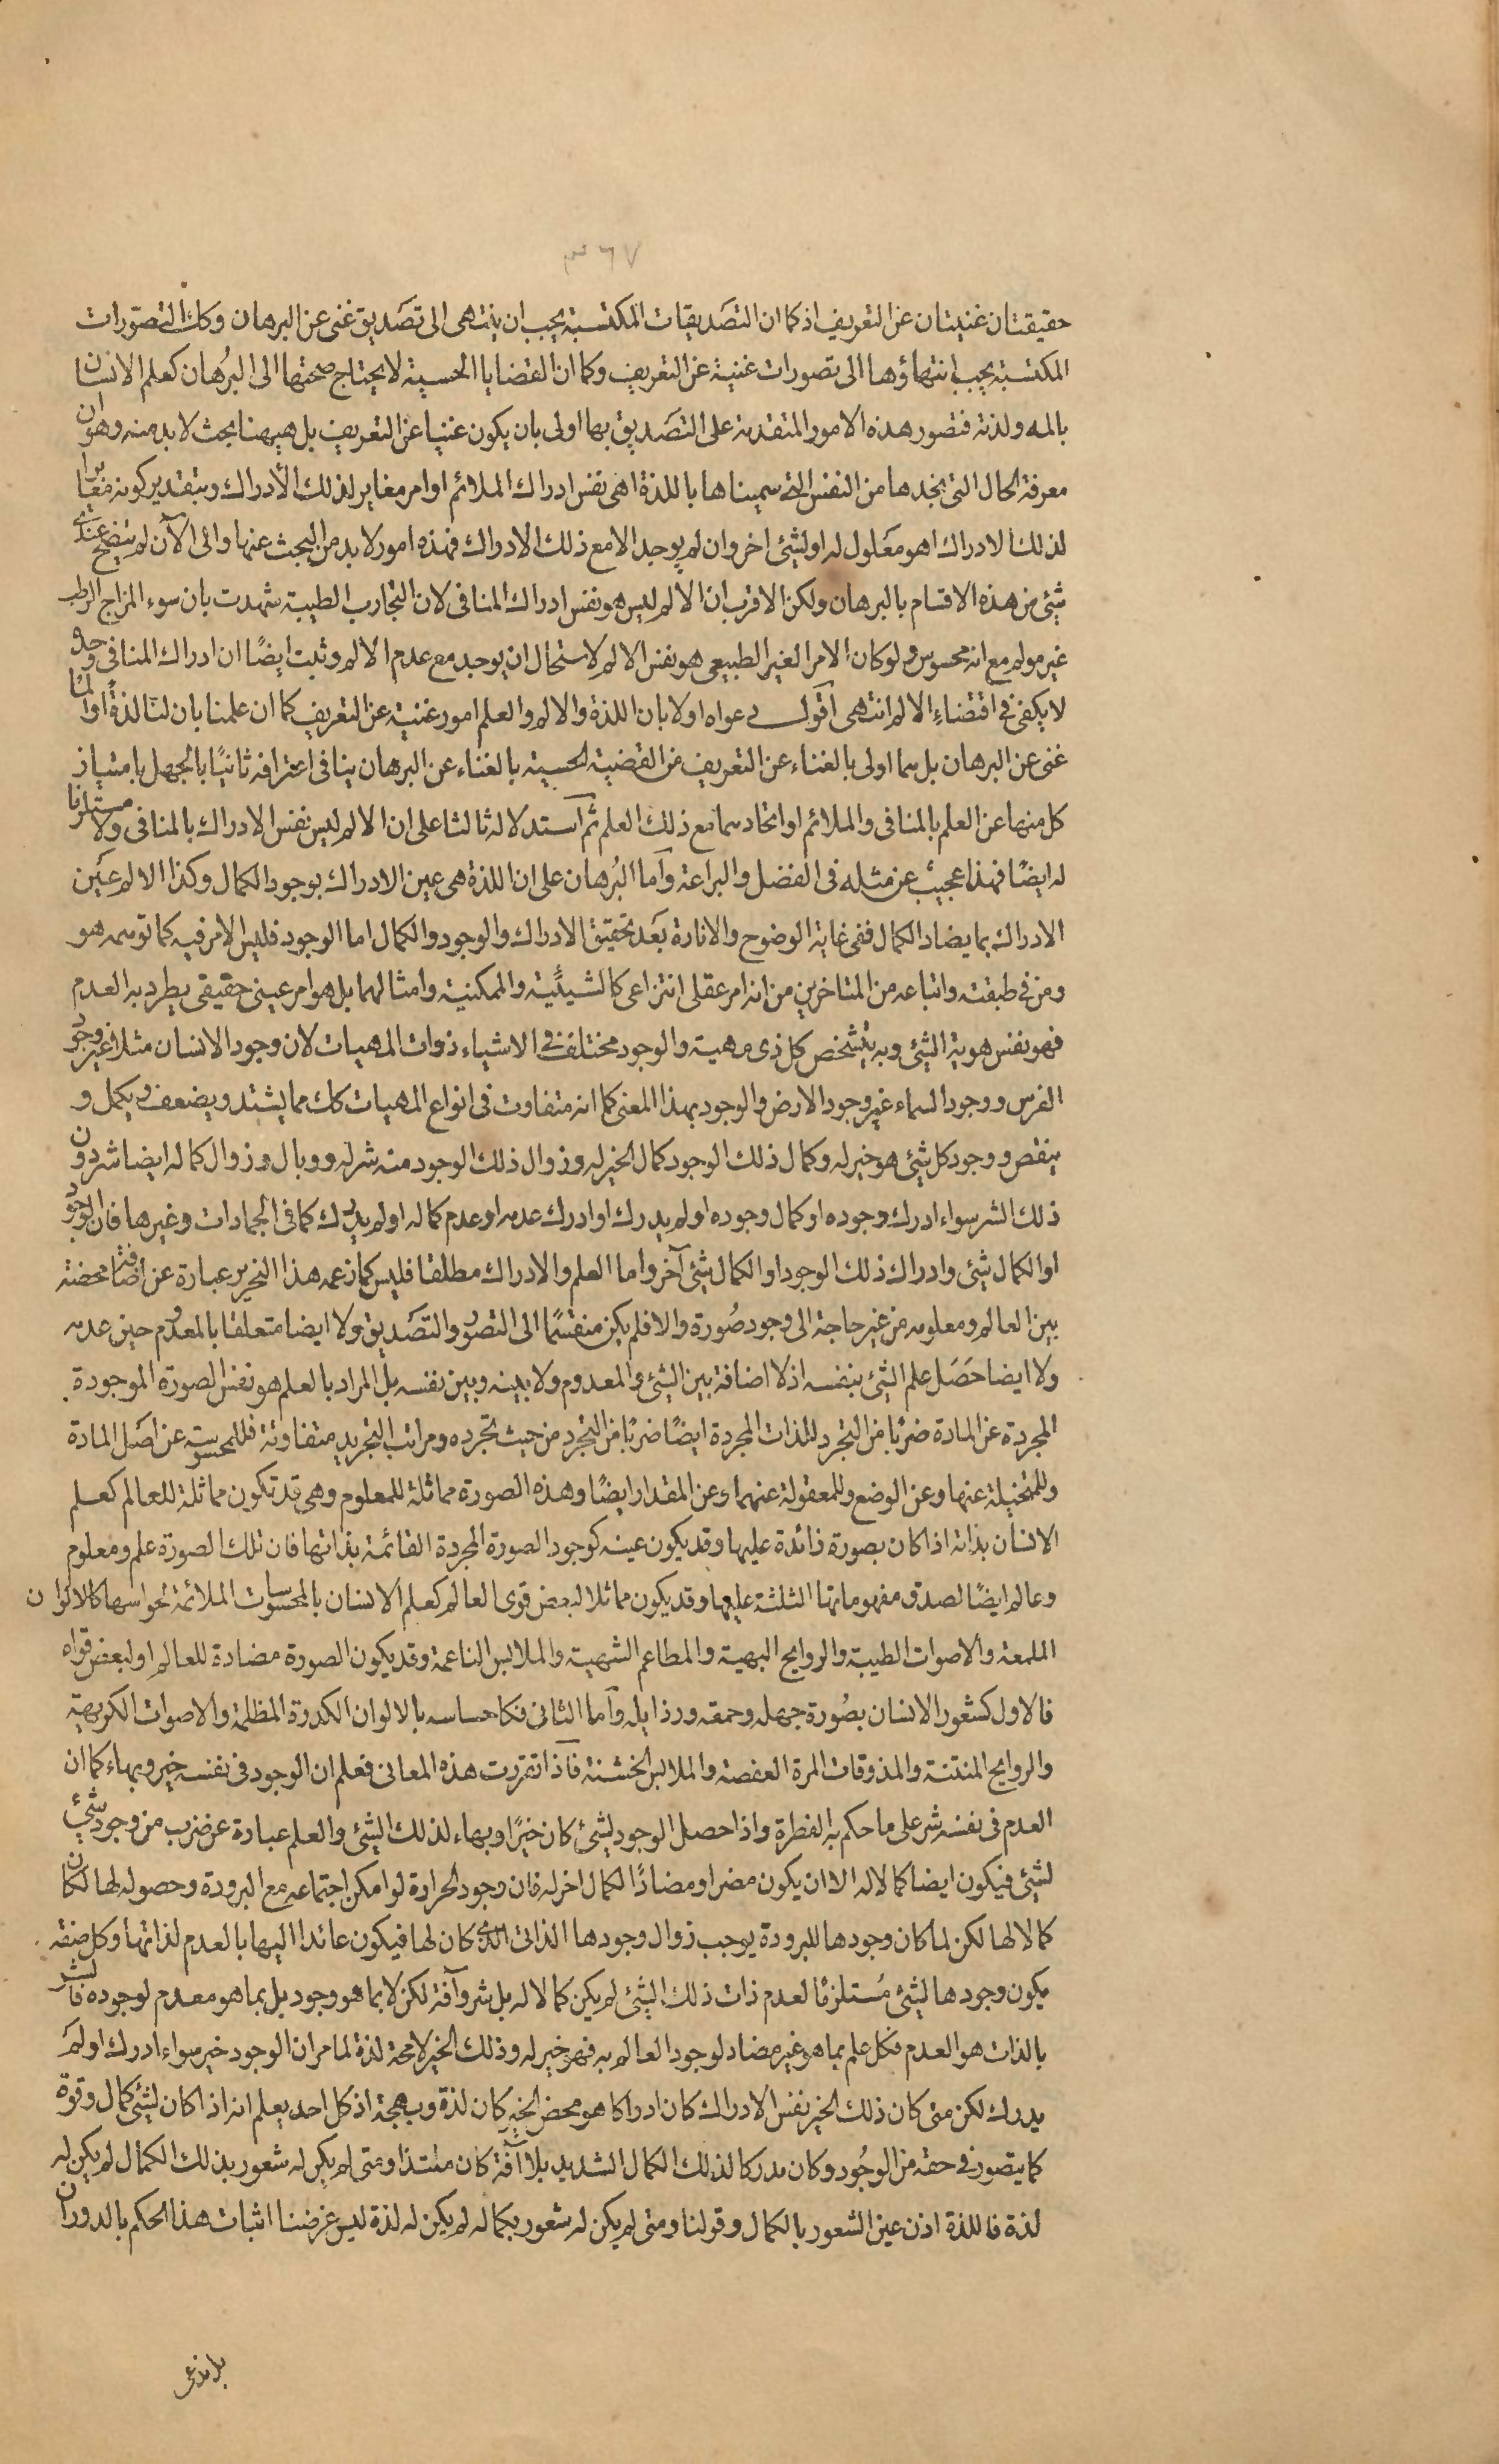 ٣٦٧
حقيقتان غنيتان عن التعريف اذ كما ان التصديقات المكتسبة يجب ان ينتهى الى تصديق غنى عن البرهان وكك التصورات
المكتسبة يجب انتهاؤها الى تصورات غنية عن التعريف وكما ان القضايا الحسية لا يحتاج صحتها الى البرهان كعلم الانسان
بالمه ولذته فتصور هذه الامور المتقدمة على التصديق بها اولى بان يكون غنيا عن التعريف بل هيهنا بحث لا بد منه وهو ان
معرفة الحال التى نجدها من النفس التى سميناها باللذة اهى نفس ادراك الملائم او امر مغاير لذلك الأدراك وبتقدير كونه مغايرا
لذلك الادراك اهو معلول له او لشئ اخر وان لم يوجد الا مع ذلك الادراك فهذه امور لا بد من البحث عنها والى الآن لم يتضح عندى
شئ من هذه الاقسام بالبرهان ولكن الاقرب ان الالم ليس هو نفس ادراك المنافى لان التجارب الطبية شهدت بان سوء المزاج الرطب
غير مولم مع انه محسوس ولو كان الامر الغير الطبيعى هو نفس الالم لاستحال ان يوجد مع عدم الالم وثبت ايضًا ان ادراك المنافى وحده
لا يكفى فى اقتضاء الالم انتهى اقول دعواه اولا بان اللذة والالم والعلم امور غنية عن التعريف كما ان علمنا بان لنا لذةً او المًا
غنى عن البرهان بل هما اولى بالغناء عن التعريف من القضية الحسية بالغناء عن البرهان ينافى اعترافه ثانيًا بالجهل بامتياز
كل منهما عن العلم بالمنافى والملائم او اتحادهما مع ذلك العلم ثم استدلاله ثالثا على ان الالم ليس نفس الادراك بالمنافى ولا مستلزما
له ايضًا فهذا عجيب عن مثله فى الفضل والبراعة وآما البرهان على ان اللذة هى عين الادراك بوجود الكمال وكذا الالم عين
الادراك بما يضاد الكمال ففى غاية الوضوح والانارة بعد تحقيق الادراك والوجود والكمال اما الوجود فليس الامر فيه كما توهمه هو
ومن فى طبقته واتباعه من المتاخرين من انه امر عقلى انتزاعى كالشيئية والممكنية وامثالهما بل هو امر عينى حقيقى يطرد به العدم
فهو نفس هوية الشئ وبه يتشخص كل ذى مهية والوجود مختلف فى الاشياء ذوات المهيات لان وجود الانسان مثلا غير وجود
الفرس ووجود السماء غير وجود الارض والوجود بهذا المعنى كما انه متفاوت فى انواع المهيات كك مما يشتد ويضعف ويكمل و
ينقص ووجود كل شئ هو خير له وكمال ذلك الوجود كمال الخير له وزوال ذلك الوجود منه شر له ووبال وزوال كماله ايضا شر دون
ذلك الشر سواء ادرك وجوده او كمال وجوده او لم يدرك او ادرك عدمه او عدم كماله او لم يدرك كما فى الجمادات وغيرها فان الوجود
او الكمال شئ وادراك ذلك الوجود او الكمال شئ آخر واما العلم والادراك مطلقا فليس كما زعمه هذا النحرير عبارة عن اضافة محضة
بين العالم ومعلومه من غير حاجة الى وجود صورة والا فلم يكن منقسمًا الى التصور والتصديق ولا ايضا متعلقا بالمعدوم حين عدمه
ولا ايضا حصل علم الشئ بنفسه اذ لا اضافة بين الشئ والمعدوم ولا بينه وبين نفسه بل المراد بالعلم هو نفس الصورة الموجودة
المجردة عن المادة ضربًا من التجرد للذات المجردة ايضًا ضربًا من التجرد من حيث تجرده ومراتب التجريد متفاوتة فللمحسوسة عن اصل المادة
وللمتخيلة عنها وعن الوضع وللمعقولة عنهما وعن المقدار ايضًا وهذه الصورة مماثلة للمعلوم وهى قد تكون مماثلة للعالم كعلم
الانسان بذاته اذا كان بصورة زائدة عليها وقد يكون عينه كوجود الصورة المجردة القائمة بذاتها فان تلك الصورة علم ومعلوم
وعالم ايضًا لصدق مفهوماتها الثلثة عليها وقد يكون مماثلا لبعض قوى العالم كعلم الانسان بالمحسوسات الملائمة لحواسها كالالوان
الملمعة والاصوات الطيبة والروايح البهية والمطاعم الشهية والملابس الناعمة وقد يكون الصورة مضادة للعالم او لبعض قواه
فالاول كشعور الانسان بصورة جهله وحمقه ورذايله وآما الثانى فكاحساسه بالالوان الكدرة المظلمة والاصوات الكريهة
والروايح المنتنة والمذوقات المرة العفصة والملابس الخشنة فآذا تقررت هذه المعانى فعلم ان الوجود فى نفسه خير وبهاء كما ان
العدم فى نفسه شر على ما حكم به الفطرة واذا حصل الوجود لشئ كان خيرًا وبهاء لذلك الشئ والعلم عبارة عن ضرب من وجود شئ
لشئ فيكون ايضا كمالا له الا ان يكون مضرا ومضادًا لكمال اخر له فان وجود الحرارة لو امكن اجتماعه مع البرودة وحصوله لها لكان
كمالا لها لكن لما كان وجودها للبرودة يوجب زوال وجودها الذاتى الذى كان لها فيكون عائدا اليها بالعدم لذاتها وكل صفة
يكون وجودها لشئ مستلزمًا لعدم ذات ذلك الشئ لم يكن كمالا له بل شر وآفة لكن لا بما هو وجود بل بما هو معدم لوجوده فالشر
بالذات هو العدم فكل علم بما هو غير مضاد لوجود العالم به فهو خير له وذلك الخير لا محة لذة لما مر ان الوجود خير سواء ادرك او لم
يدرك لكن متى كان ذلك الخير نفس الادراك كان ادراكا هو محض الخير كان لذة وبهجة اذ كل احد يعلم انه اذا كان لشئ كمال وقوة
كما يتصور فى حقه من الوجود وكان مدركا لذلك الكمال الشديد بلا آفة كان ملتذا ومتى لم يكن له شعور بذلك الكمال لم يكن له
لذة فاللذة اذن عين الشعور بالكمال وقولنا ومتى لم يكن له شعور بكماله لم يكن له لذة ليس غرضنا اثبات هذا الحكم بالدوران
بل ندعى